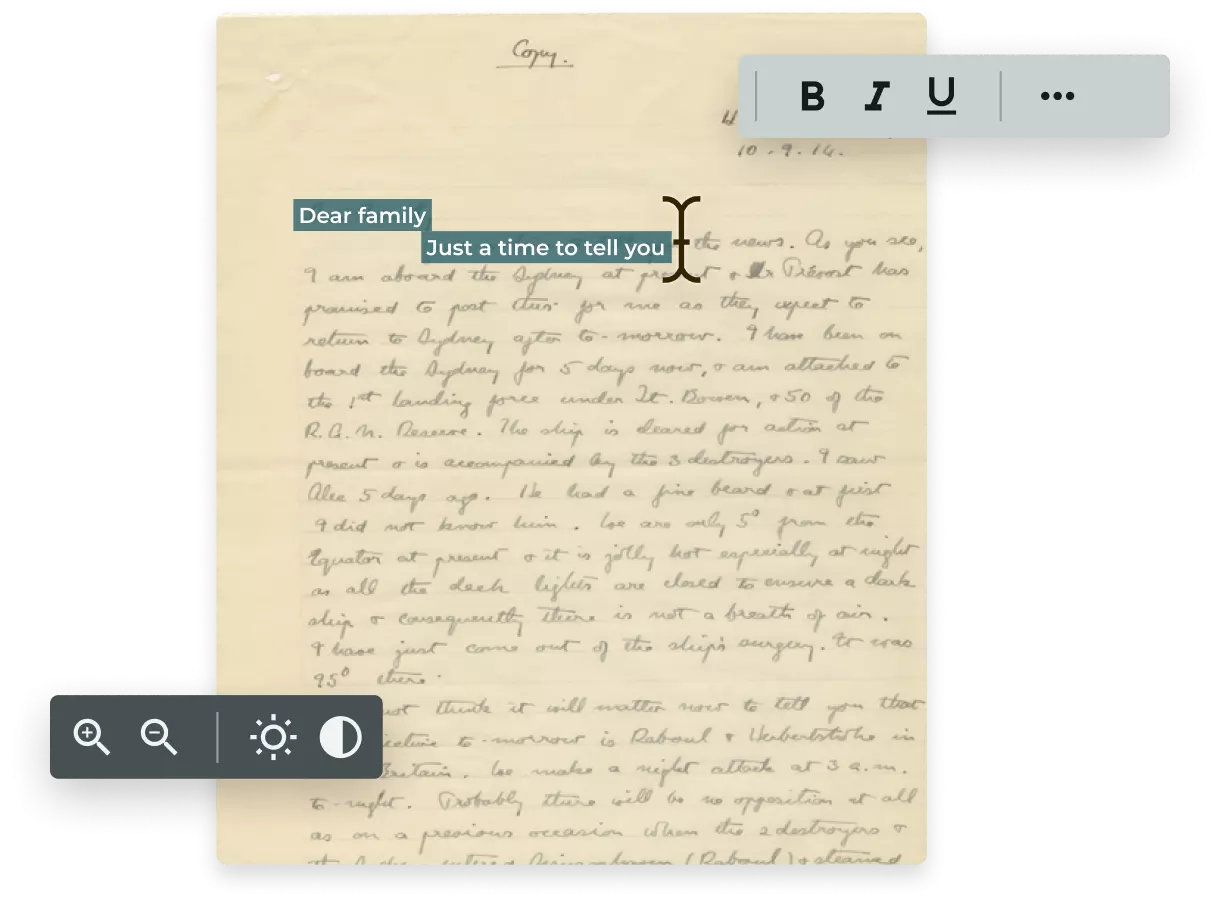 Copy.
B I U
10.9.14.
Dear family
Just a time to tell you the news. As you see,
I am aboard the Sydney at present & Dr Prevost has
promised to post this for me as they expect to
return to Sydney after to-morrow. I have been on
board the Sydney for 5 days now, & am attached to
the 1st landing force under Lt. Bowen, & 50 of the
R.A.N. Reserve. The ship is cleared for action at
present & is accompanied by the 3 destroyers. I saw
Alec 5 days ago. He had a fine beard & at first
I did not know him. We are only 5° from the
Equator at present & it is jolly hot especially at night
as all the deck lights are closed to ensure a dark
ship & consequently there is not a breath of air.
I have just come out of the ship's surgery. It was
95° there.
not think it will matter now to tell you that
to-morrow is Rabaul & Herbertshöhe in
Britain. We make a night attack at 3 a.m.
to-night. Probably there will be no opposition at all
as on a previous occasion when the 2 destroyers &
the Sydney entered (Rabaul) & steamed